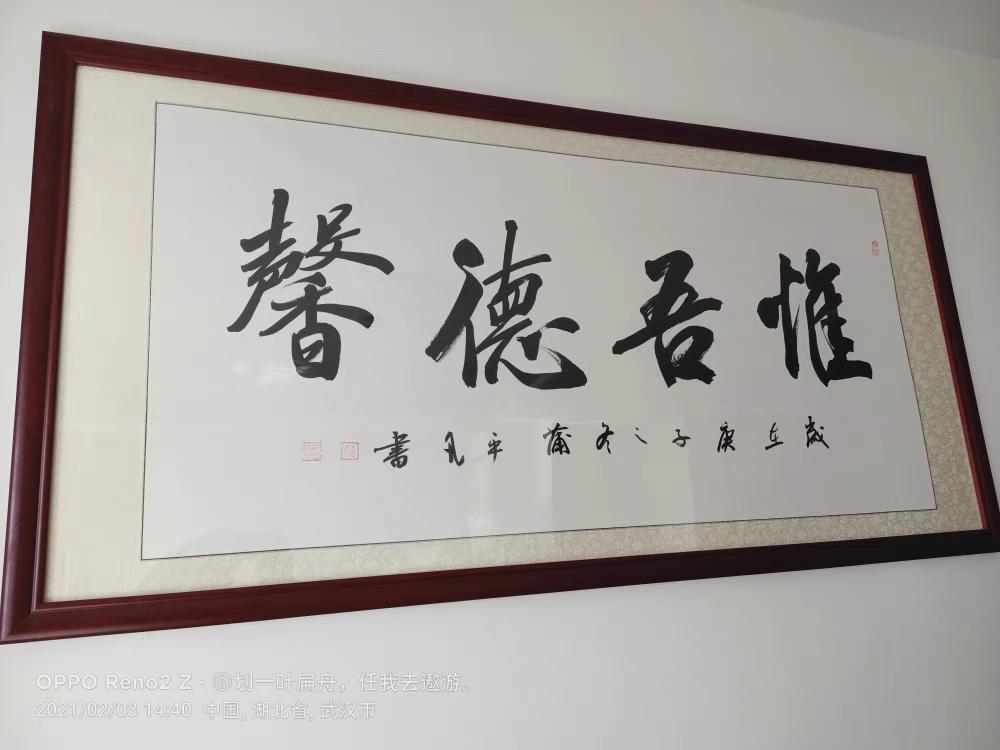 惟吾德馨
歲在庚子之冬蒲平凡書
OPPO Reno2 Z · ◎划一叶扁舟，任我去遨游。
2021/02/03 14:40 中国, 湖北省, 武汉市